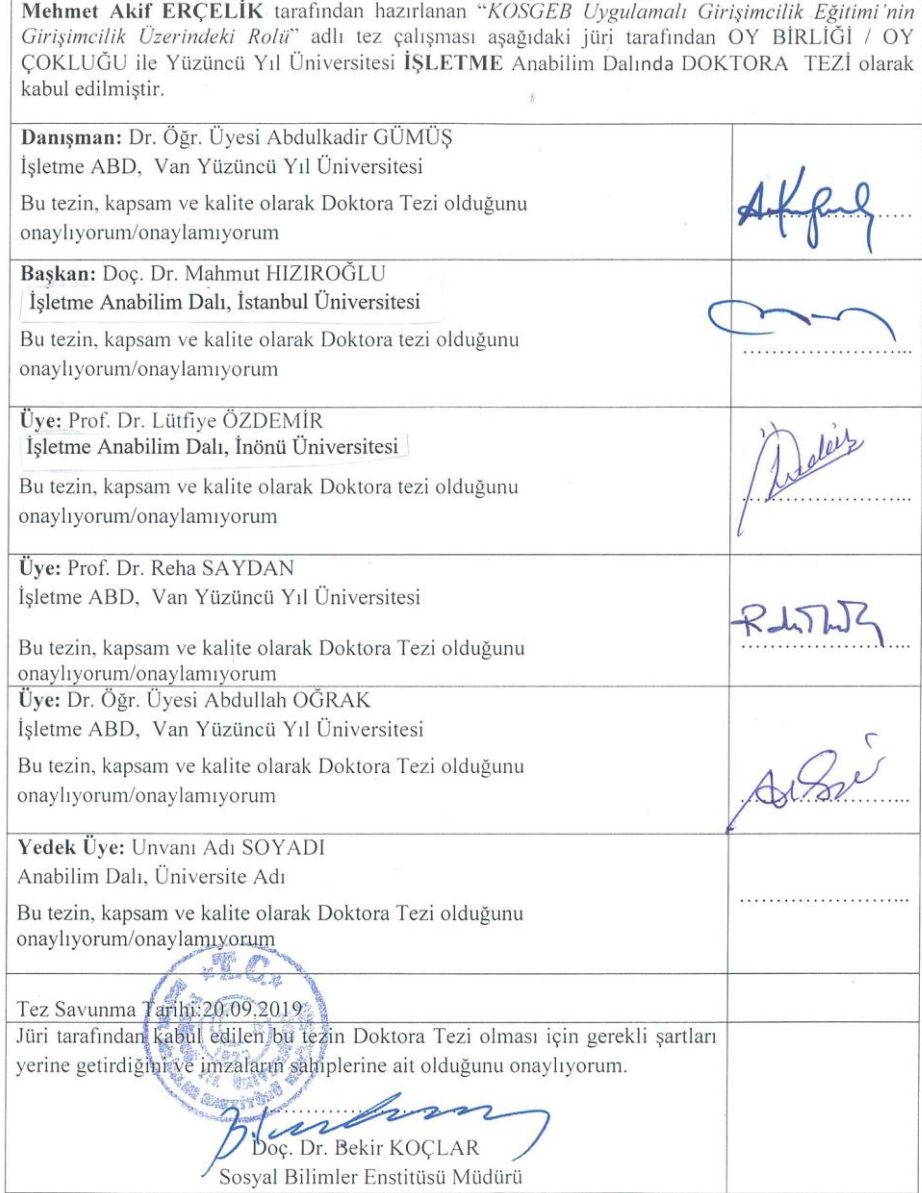 Mehmet Akif ERÇELİK tarafından hazırlanan “KOSGEB Uygulamalı Girişimcilik Eğitimi’nin
Girişimcilik Üzerindeki Rolü” adlı tez çalışması aşağıdaki jüri tarafından OY BİRLİĞİ / OY
ÇOKLUĞU ile Yüzüncü Yıl Üniversitesi İŞLETME Anabilim Dalında DOKTORA TEZİ olarak
kabul edilmiştir.
Danışman: Dr. Öğr. Üyesi Abdulkadir GÜMÜŞ
İşletme ABD, Van Yüzüncü Yıl Üniversitesi
Bu tezin, kapsam ve kalite olarak Doktora Tezi olduğunu
onaylıyorum/onaylamıyorum
Başkan: Doç. Dr. Mahmut HIZIROĞLU
İşletme Anabilim Dalı, İstanbul Üniversitesi
Bu tezin, kapsam ve kalite olarak Doktora tezi olduğunu
onaylıyorum/onaylamıyorum
Üye: Prof. Dr. Lütfiye ÖZDEMİR
İşletme Anabilim Dalı, İnönü Üniversitesi
Bu tezin, kapsam ve kalite olarak Doktora tezi olduğunu
onaylıyorum/onaylamıyorum
Üye: Prof. Dr. Reha SAYDAN
İşletme ABD, Van Yüzüncü Yıl Üniversitesi
Bu tezin, kapsam ve kalite olarak Doktora Tezi olduğunu
onaylıyorum/onaylamıyorum
Üye: Dr. Öğr. Üyesi Abdullah OĞRAK
İşletme ABD, Van Yüzüncü Yıl Üniversitesi
Bu tezin, kapsam ve kalite olarak Doktora Tezi olduğunu
onaylıyorum/onaylamıyorum
Yedek Üye: Unvanı Adı SOYADI
Anabilim Dalı, Üniversite Adı
Bu tezin, kapsam ve kalite olarak Doktora Tezi olduğunu
onaylıyorum/onaylamıyorum
T.C.
Tez Savunma Tarihi:20.09.2019
Jüri tarafından kabul edilen bu tezin Doktora Tezi olması için gerekli şartları
yerine getirdiğini ve imzaların sahiplerine ait olduğunu onaylıyorum.
Doç. Dr. Bekir KOÇLAR
Sosyal Bilimler Enstitüsü Müdürü